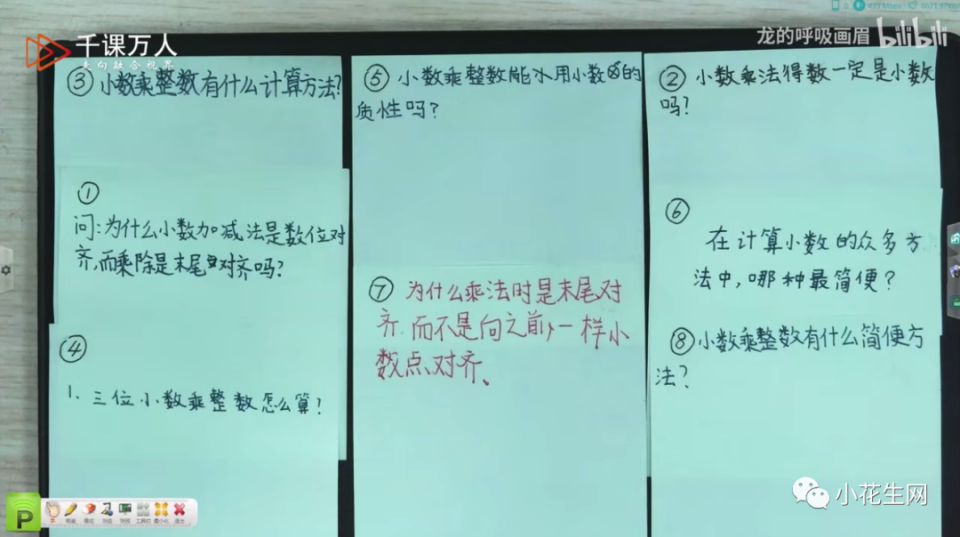 千课万人
走向融合视界
龙的呼吸画眉 bilibili
③小数乘整数有什么计算方法?
①
问:为什么小数加减法是数位对
齐,而乘除是末尾对齐吗?
④
1. 三位小数乘整数怎么算?
⑤小数乘整数能不用小数的
质性吗?
⑦为什么乘法时是末尾对
齐.而不是向之前,一样小
数点、对齐、
②小数乘法得数一定是小数
吗?
⑥
在计算小数的众多方
法中,哪种最简便?
⑧小数乘整数有什么简便方
法?
小花生网